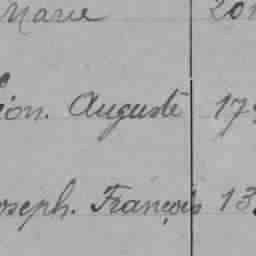 Marie 20
ion. Auguste 17
oseph. François 13